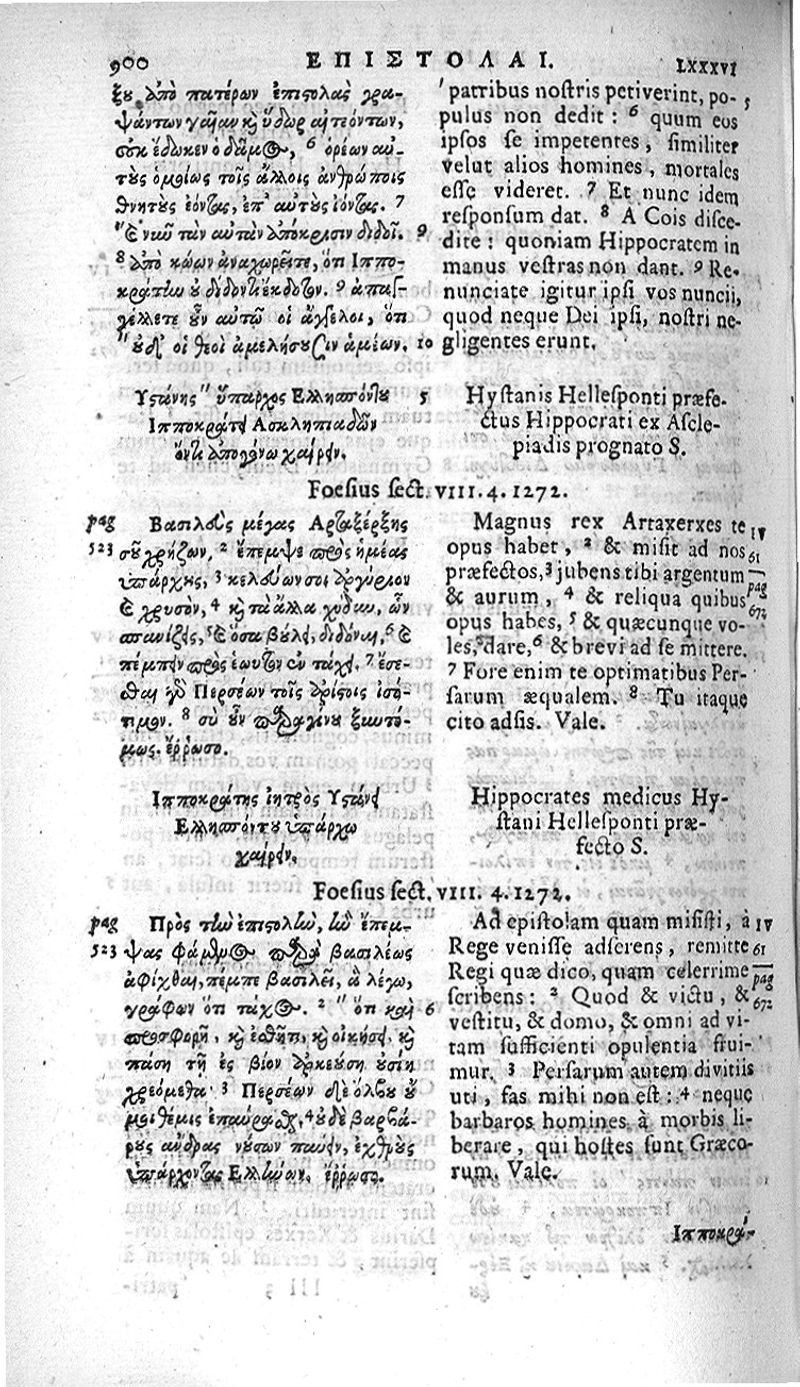 900 ΕΠΙΣΤΟΛΑΙ. LXXXVI
ξου ἀπὸ πατέρων ἐπιστολὰς γρα-
ψάντων γαῖαν κὶ ὕδωρ αἰτεόντων,
οὐκ ἔδωκεν ὁ δᾶμος, 6 ὁρέων αὐ-
τοὺς ὁμοίως τοῖς ἄλλοις ἀνθρώποις
θνητοὺς ἐόντας, ἐπ' αὐτοὺς ἰόντας. 7
"καὶ νῦν τὰν αὐτὰν ἀπόκρισιν διδοῖ. 9
8 ἀπὸ κώων ἀναχωρεῖτε, ὅτι Ἱππο-
κράτην οὐ διδόντι ἔκδοτον. 9 ἀπαγ-
γέλλετε οὖν αὐτῷ οἱ ἄγγελοι, ὅτι
"οὐδ' οἱ θεοὶ ἀμελήσουσιν ἁμέων. 10
Ὑστάνης " ὕπαρχος Ἑλλησπόντου 5
Ἱπποκράτει Ἀσκληπιαδῶν
ὄντι ἀπογόνῳ χαίρειν.
patribus nostris petiverint, po-
pulus non dedit : 6 quum eos
ipsos se impetentes, similiter
velut alios homines, mortales
esse videret. 7 Et nunc idem
responsum dat. 8 A Cois disce-
dite : quoniam Hippocratem in
manus vestras non dant. 9 Re-
nunciate igitur ipsi vos nuncii,
quod neque Dei ipsi, nostri ne-
gligentes erunt.
Hystanis Hellesponti præfe-
ctus Hippocrati ex Ascle-
piadis prognato S.
Foesius sect. VIII. 4. 1272.
pag Βασιλεὺς μέγας Ἀρταξέρξης
523 σοῦ χρῄζων, 2 ἔπεμψε πρὸς ἡμέας
ὑπάρχους, 3 κελεύων σοι ἀργύριον
καὶ χρυσὸν, 4 κὶ τὰ ἄλλα χύδην, ὧν
σπανίζεις, 5 καὶ ὅσα βούλει, διδόναι, 6 καὶ
πέμπειν πρὸς ἑωυτὸν ἐν τάχει. 7 ἔσε-
σθαι γὰρ Περσέων τοῖς ἀρίστοις ἰσό-
τιμον. 8 σὺ οὖν παραγίνου ξυντό-
μως. ἔρρωσο.
Magnus rex Artaxerxes te IV
opus habet, 2 & misit ad nos 61
præfectos, 3 jubens tibi argentum
& aurum, 4 & reliqua quibus pag
opus habes, 5 & quæcunque vo- 672
les, dare, 6 & brevi ad se mittere.
7 Fore enim te optimatibus Per-
sarum æqualem. 8 Tu itaque
cito adsis. Vale.
Ἱπποκράτης ἰητρὸς Ὑστάνει
Ἑλλησπόντου ὑπάρχῳ
χαίρειν.
Hippocrates medicus Hy-
stani Hellesponti præ-
fecto S.
Foesius sect. VIII. 4. 1272.
pag Πρὸς τὴν ἐπιστολὴν, ἣν ἔπεμ-
523 ψας φάμενος παρὰ βασιλέως
ἀφίχθαι, πέμπε βασιλεῖ, ἃ λέγω,
γράφων ὅτι τάχος. 2 " ὅτι καὶ 6
προσφορῇ, κὶ ἐσθῆτι, κὶ οἰκήσει, κὶ
πάσῃ τῇ ἐς βίον ἀρκεούσῃ οὐσίῃ
χρεόμεθα· 3 Περσέων δὲ ὄλβου οὔ
μοι θέμις ἐπαύρασθαι, 4 οὐδὲ βαρβά-
ρους ἄνδρας νούσων παύειν, ἐχθροὺς
ὑπάρχοντας Ἑλλήνων. ἔρρωσο.
Ad epistolam quam misisti, à IV
Rege venisse adserens, remitte 61
Regi quæ dico, quam celerrime pag
scribens : 2 Quod & victu, & 672
vestitu, & domo, & omni ad vi-
tam sufficienti opulentia frui-
mur. 3 Persarum autem divitiis
uti, fas mihi non est : 4 neque
barbaros homines à morbis li-
berare, qui hostes sunt Græco-
rum. Vale.
Ἱπποκρά-